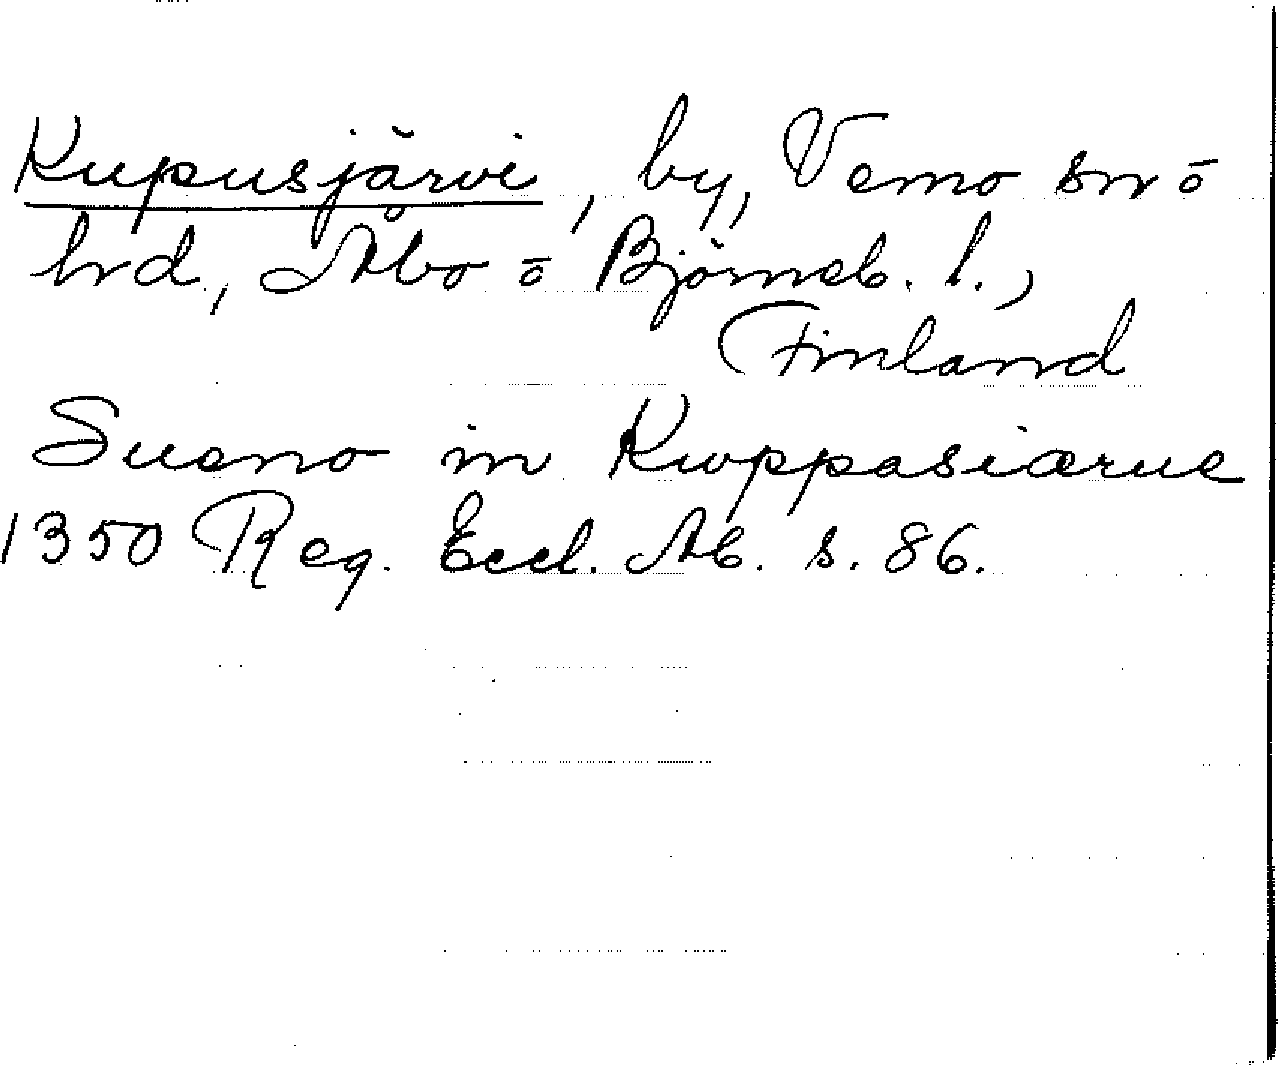 Kupusjärvi, by, Vemo sn o
hrd, Åbo o Björneb. l.,
Finland
Sueno in Kwppasiærue
1350 Reg. Eccl. Ab. s. 86.